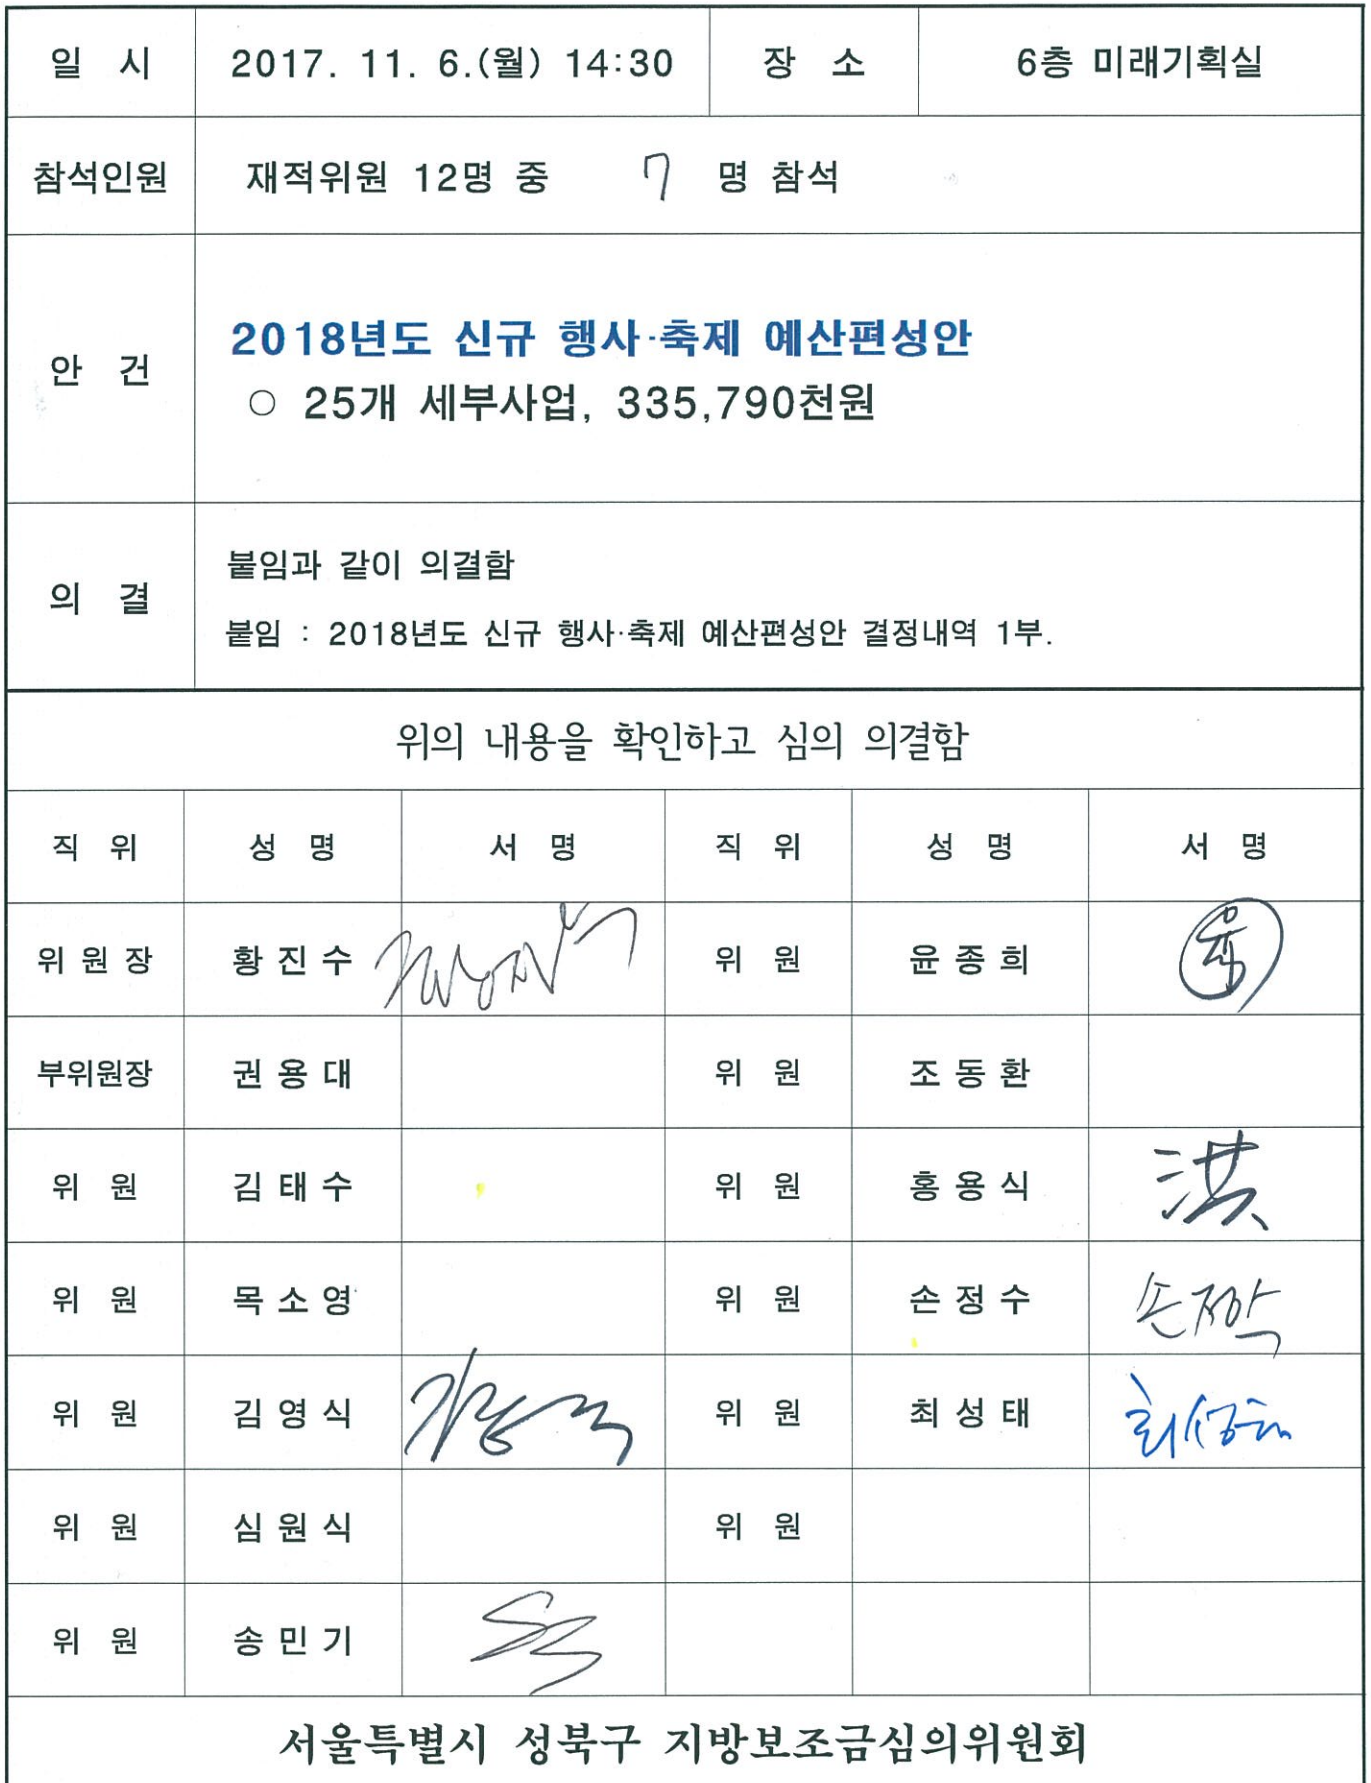 일 시 2017. 11. 6.(월) 14:30 장 소 6층 미래기획실
참석인원 재적위원 12명 중 7 명 참석
안 건
2018년도 신규 행사·축제 예산편성안
○ 25개 세부사업, 335,790천원
의 결
붙임과 같이 의결함
붙임 : 2018년도 신규 행사·축제 예산편성안 결정내역 1부.
위의 내용을 확인하고 심의 의결함
직 위 성 명 서 명 직 위 성 명 서 명
위 원 장 황 진 수 위 원 윤 종 희
부위원장 권 용 대 위 원 조 동 환
위 원 김 태 수 위 원 홍 용 식 洪
위 원 목 소 영 위 원 손 정 수 손정수
위 원 김 영 식 위 원 최 성 태 최성태
위 원 심 원 식 위 원
위 원 송 민 기
서울특별시 성북구 지방보조금심의위원회